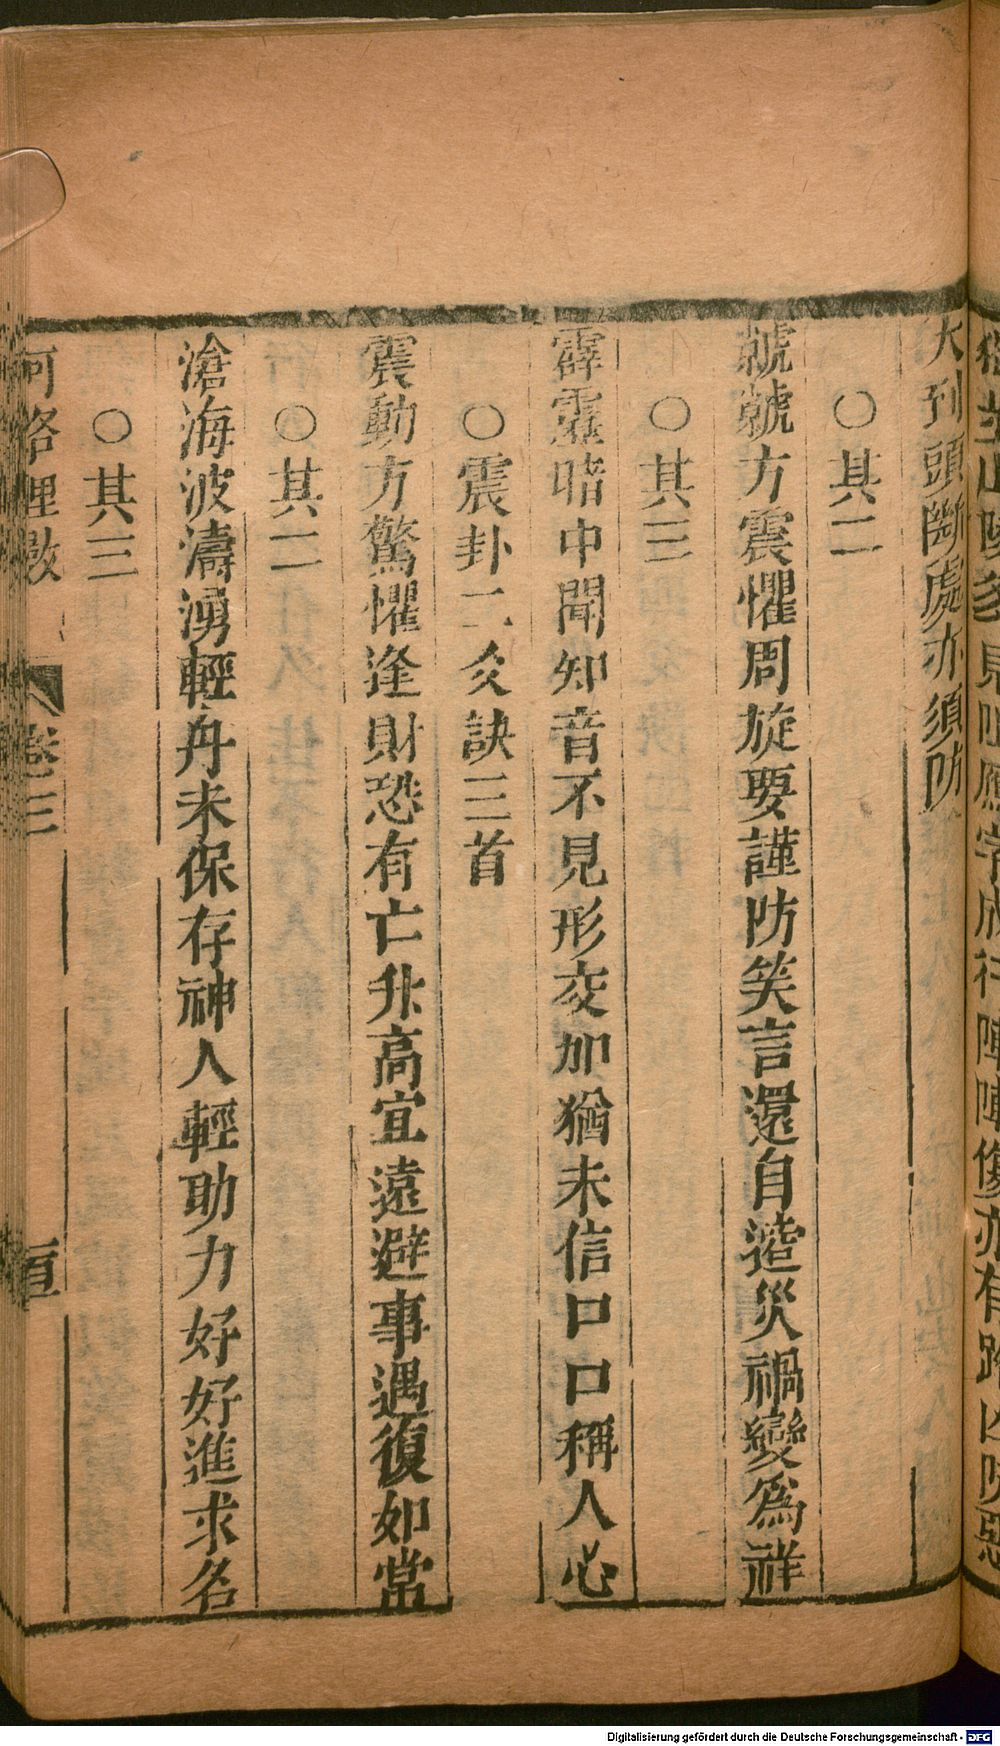 大到頭斷處亦須防
○其二
虩虩方震懼周旋要謹防笑言還自造災禍變爲祥
○其三
霹靂暗中聞知音不見形交加猶未信口口稱人心
○震卦二爻訣三首
震動方驚懼逢財恐有亡升高宜遠避事遇復如當
○其二
滄海波濤湧輕舟未保存神人輕助力好好進求名
○其三
河洛理數
卷三
Digitalisierung gefördert durch die Deutsche Forschungsgemeinschaft - DFG